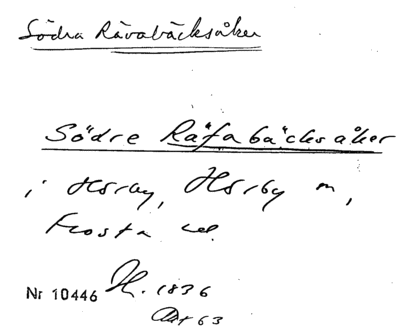 Södra Rävabäcksåker
Södre Räfabäcksåker
i Hörby, Hörby m,
Frosta
Nr 10446 H. 1836
63